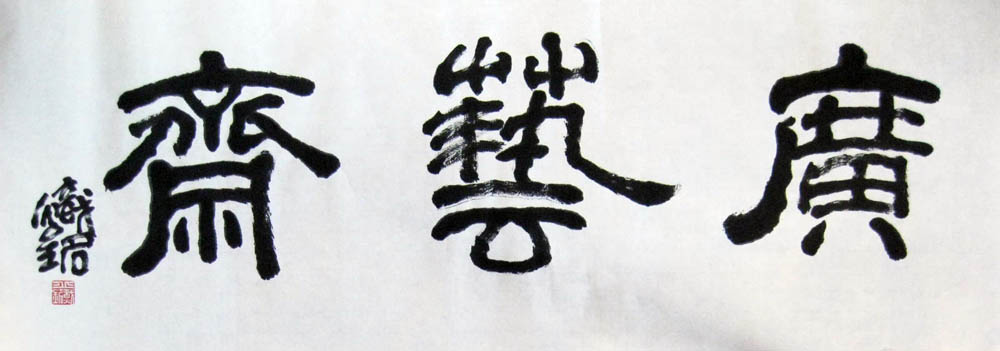 廣藝齋